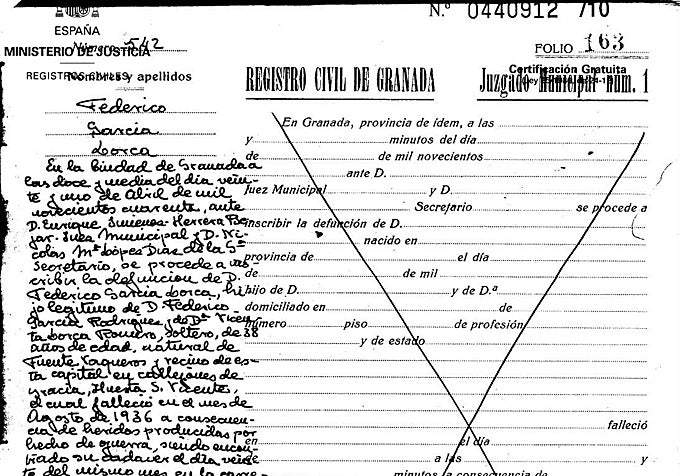 N.º 0440912 /10
ESPAÑA
Número 542
MINISTERIO DE JUSTICIA
FOLIO 163
REGISTROS CIVILES
Nombres y apellidos
REGISTRO CIVIL DE GRANADA
Certificación Gratuita
Juzgado Municipal núm. 1
Federico
García
Lorca
En la Ciudad de Granada a
las doce y media del día vein-
te y uno de Abril de mil
novecientos cuarenta, ante
D. Enrique Jimenez-Herrera Be-
jar-Juez Municipal y D. Ni-
colás Mª López Diaz de la Sª
Secretario, se procede a ins-
cribir la defuncion de D.
Federico Garcia Lorca, hi-
jo legitimo de D. Federico
Garcia Rodriguez y de Dª Vicen-
ta Lorca Romero, soltero, de 38
años de edad, natural de
Fuente Vaqueros y vecino de es-
ta capital en callejones de
gracia, Huerta S. Vicente,
el cual falleció en el mes de
Agosto de 1936 a consecuen-
cia de heridas producidas por
hecho de guerra, siendo encon-
trado su cadaver el dia veine
te del mismo mes en la carre-
En Granada, provincia de ídem, a las
y minutos del día
de de mil novecientos
ante D.
Juez Municipal y D.
Secretario se procede a
inscribir la defunción de D.
nacido en
provincia de el día
de de mil
hijo de D. y de D.ª
domiciliado en de
número piso de profesión
y de estado
falleció
en el día
a las y
minutos a consecuencia de